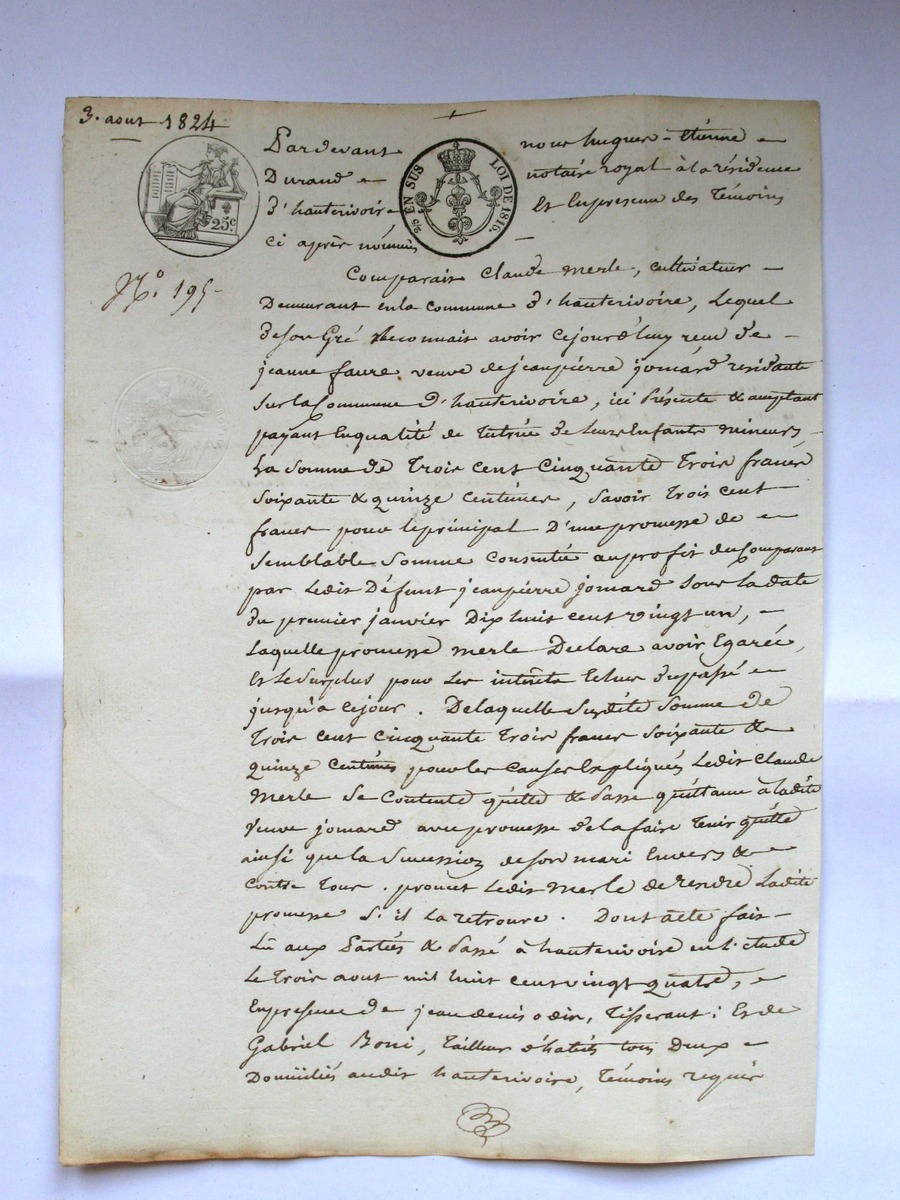 3. aout 1824
25c
25 EN SUS LOI DE 1816.
Pardevant nous hugues-étienne
Durand notaire royal à la résidence
d'hauterivoire Et En presence des Témoins
ci après nommés
N.o 195
Comparait Claude merle, cultivateur
Demeurant en la Commune d'hauterivoire, Lequel
de son Gré Reconnait avoir cejourd'huy reçu de
jeanne faure veuve de jeanpierre jomard residante
sur la Commune d'hauterivoire, ici présente & acceptant
payant En qualité de Tutrice de leurs Enfants mineurs
La somme de Trois cent cinquante Trois francs
soixante & quinze Centimes, savoir Trois cent
francs pour le principal D'une promesse de
semblable somme Consentie au profit du Comparant
par Ledit Défunt jeanpierre jomard sous la date
du premier janvier Dix huit cent vingt un,
Laquelle promesse merle Declare avoir Egarée,
Et Le surplus pour Les intérêts Echus du passé
jusqu'a cejour. De laquelle susdite somme de
Trois cent cinquante Trois francs soixante &
quinze centimes pour les causes Expliqués Ledit Claude
merle se Contente quitte & passe quittance à ladite
veuve jomard avec promesse de la faire Tenir quitte
ainsi que la succession de son mari Envers &
contre Tous. promet Ledit merle de rendre Ladite
promesse s'il La retrouve. Dont acte fait
Lu aux Parties & passé à hauterivoire en l'étude
Le Trois aout mil huit cent vingt quatre,
En presence de jean denis odin, Tisserant; Et de
Gabriel Boni, Tailleur d'habits tous Deux
Domiciliés audit hauterivoire, Témoins requis